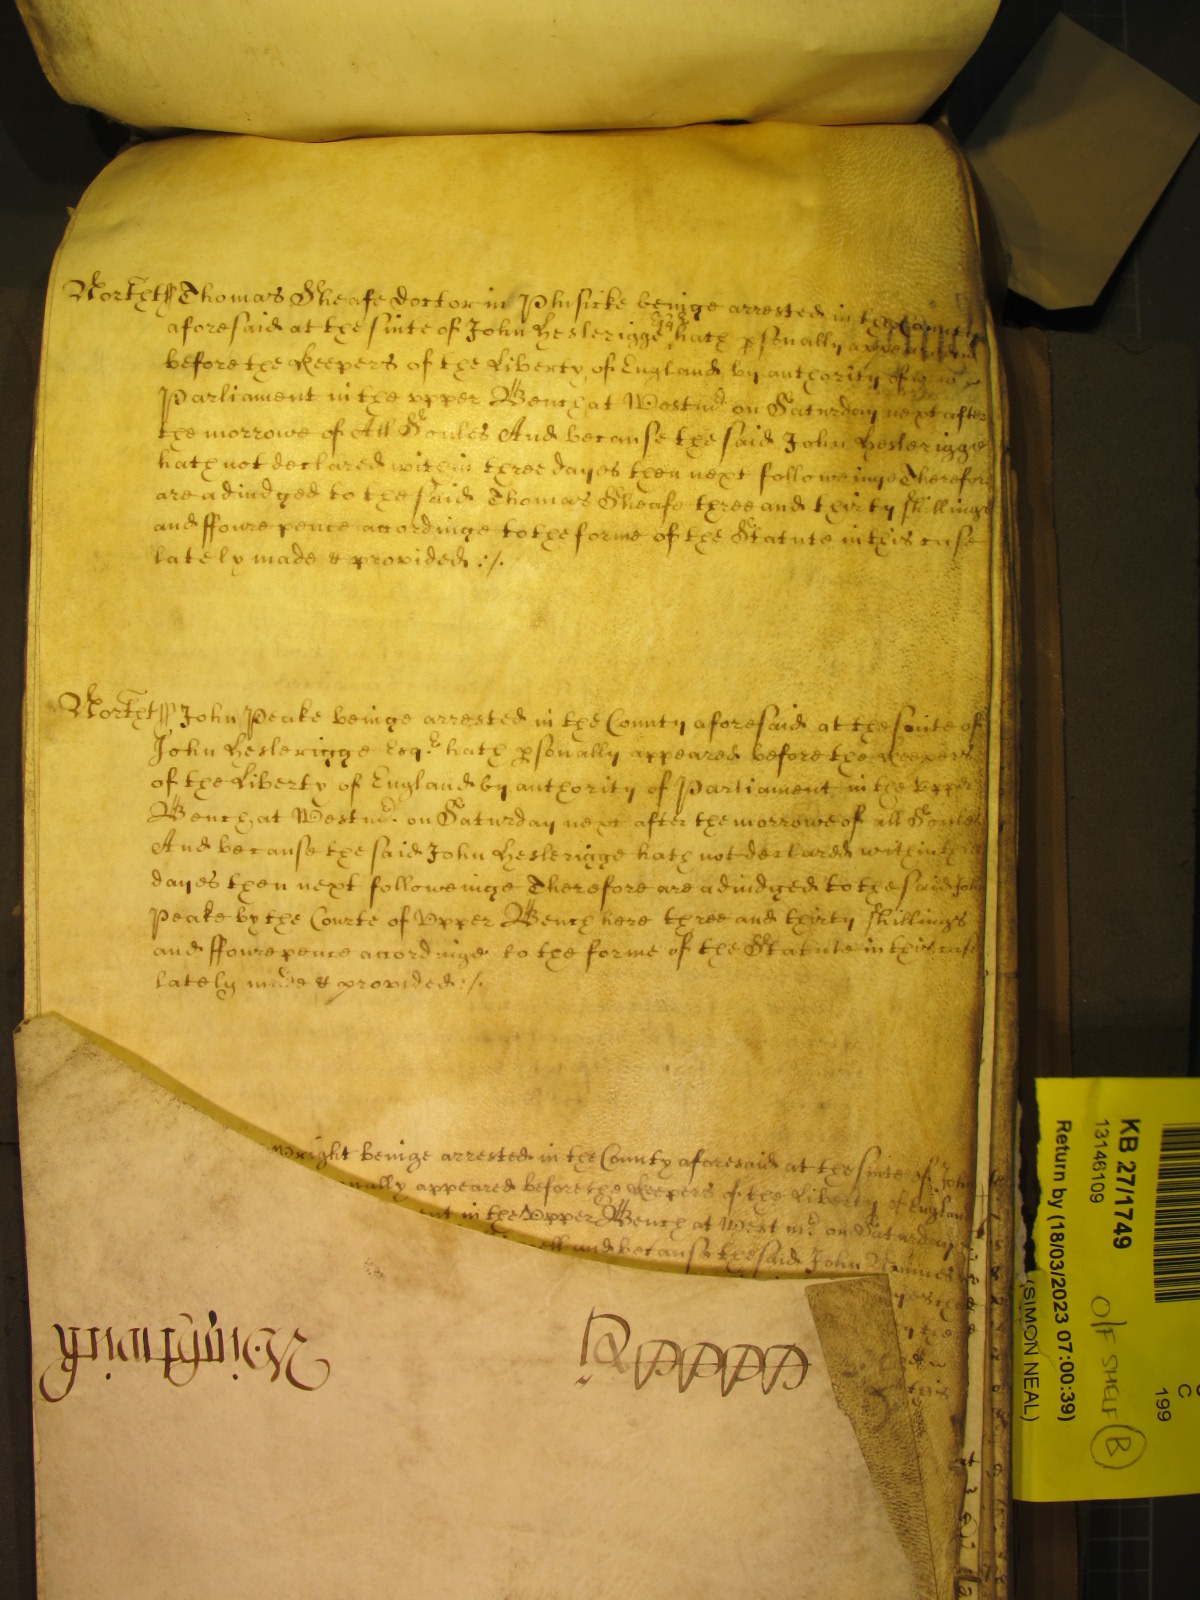 Northt ss Thomas Sheafe doctor in Phisicke beinge arrested in the County
aforesaid at the suite of John Heslerigge Esqr hath psonally appeared
before the Keepers of the Liberty of England by authority of
Parliament in the vpper Bench at Westmr on Saturday next after
the morrowe of All Soules And because the said John Heslerigge
hath not declared within three dayes then next followeinge Therefore
are adiudged to the said Thomas Sheafe three and thirty shillings
and ffoure pence accordinge to the forme of the Statute in this case
lately made & provided :/.
Northt ss John Peake beinge arrested in the County aforesaid at the suite of
John Heslerigge Esqr hath psonally appeared before the Keepers
of the Liberty of England by authority of Parliament in the vpper
Bench at Westmr on Saturday next after the morrowe of all Soules
And because the said John Heslerigge hath not declared within three
dayes then next followeinge Therefore are adiudged to the said John
Peake by the Courte of Vpper Bench here three and thirty shillings
and ffoure pence accordinge to the forme of the Statute in this case
lately made & provided :/.
wright beinge arrested in the County aforesaid at the suite of John
onally appeared before the Keepers of the Liberty of England
ent in the Vpper Bench at Westmr on Saturday
ell and because the said John
KB 27/1749
13146109
Return by (18/03/2023 07:00:39)
(SIMON NEAL)
O/F SHELF B
C
199